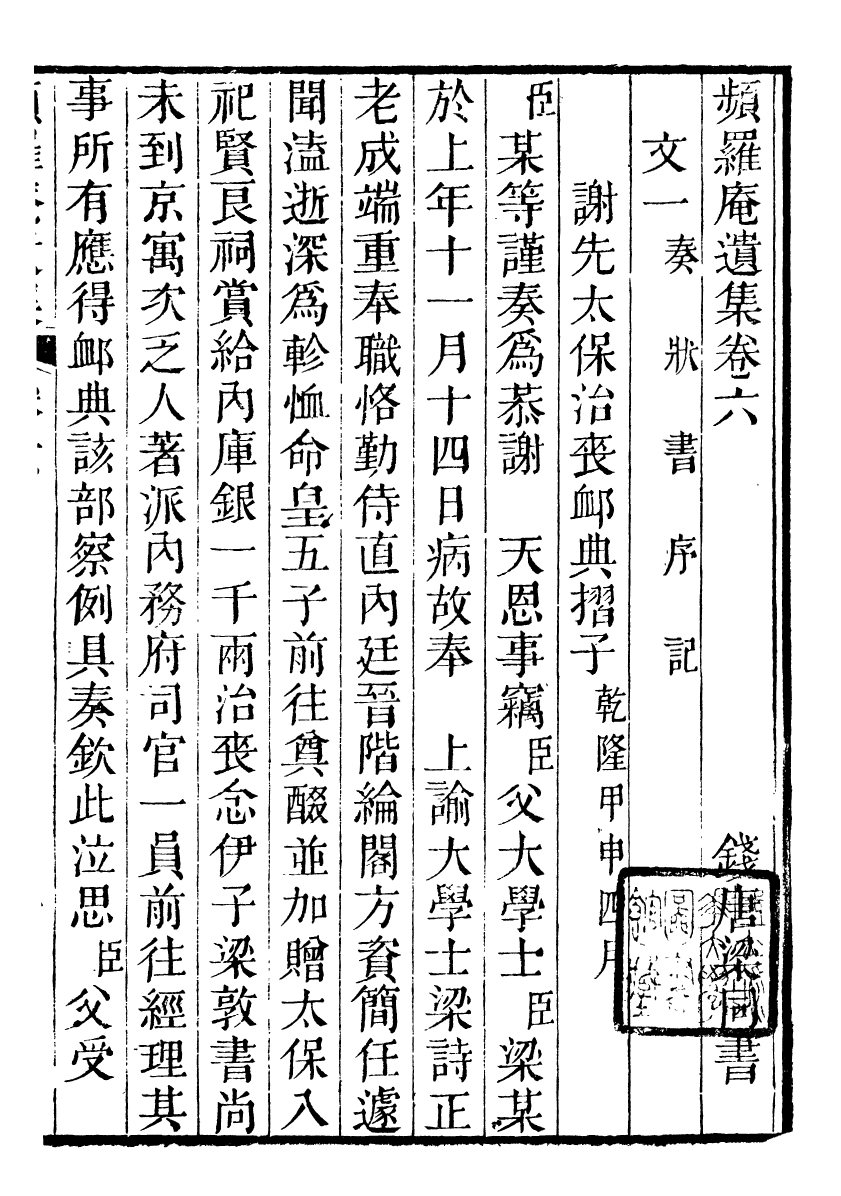 頻羅庵遺集卷六
錢唐梁同書
文一 奏 狀 書 序 記
謝先太保治喪衈典摺子 乾隆甲申四月
臣某等謹奏爲恭謝 天恩事竊臣父大學士臣梁某
於上年十一月十四日病故奉 上諭大學士梁詩正
老成端重奉職恪勤侍直內廷晉階綸閣方資簡任遽
聞溘逝深爲軫恤命皇五子前往奠醊並加贈太保入
祀賢良祠賞給內庫銀一千兩治喪念伊子梁敦書尚
未到京寓次乏人著派內務府司官一員前往經理其
事所有應得衈典該部察例具奏欽此泣思臣父受